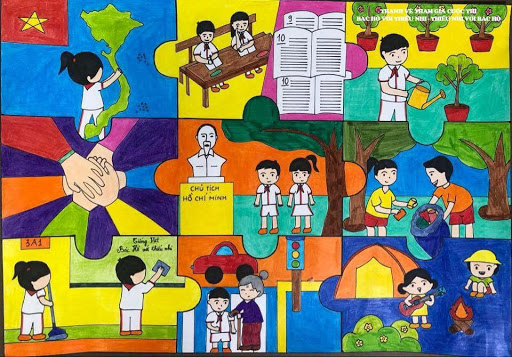 TRANH VẼ THAM GIA CUỘC THI
BÁC HỒ VỚI THIẾU NHI - THIẾU NHI VỚI BÁC HỒ
9
10
10
CHỦ TỊCH
HỒ CHÍ MINH
3A1
Tiếng Việt
Bác Hồ với thiếu nhi